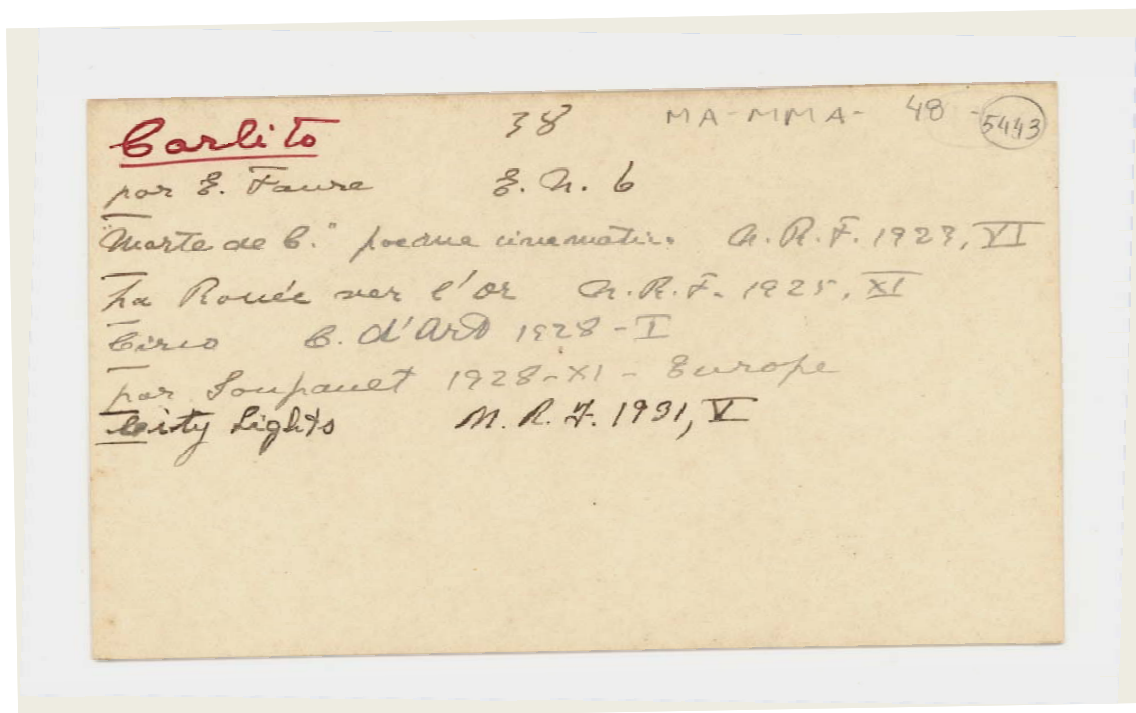 Carlito 38 MA-MMA-48-5443
por E. Faure E. N. 6
"Morte de C." poema cinematic. N. R. F. 1923, VI
La Rouée ver l'or N. R. F. 1925, XI
Circo C. d'Art 1928-I
por Soupault 1928-XI - Europe
City Lights N. R. F. 1931, V